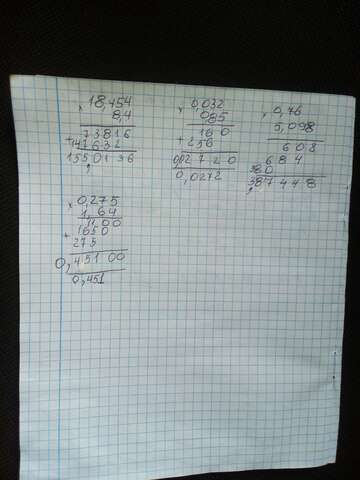 18,454
× 8,4
73816
+ 147632
1550136
,
× 0,032
0,85
160
+ 256
0,02720
0,0272
× 0,76
5,098
608
684
380
3,87448
× 0,275
1,64
1100
+ 1650
275
0,45100
0,451